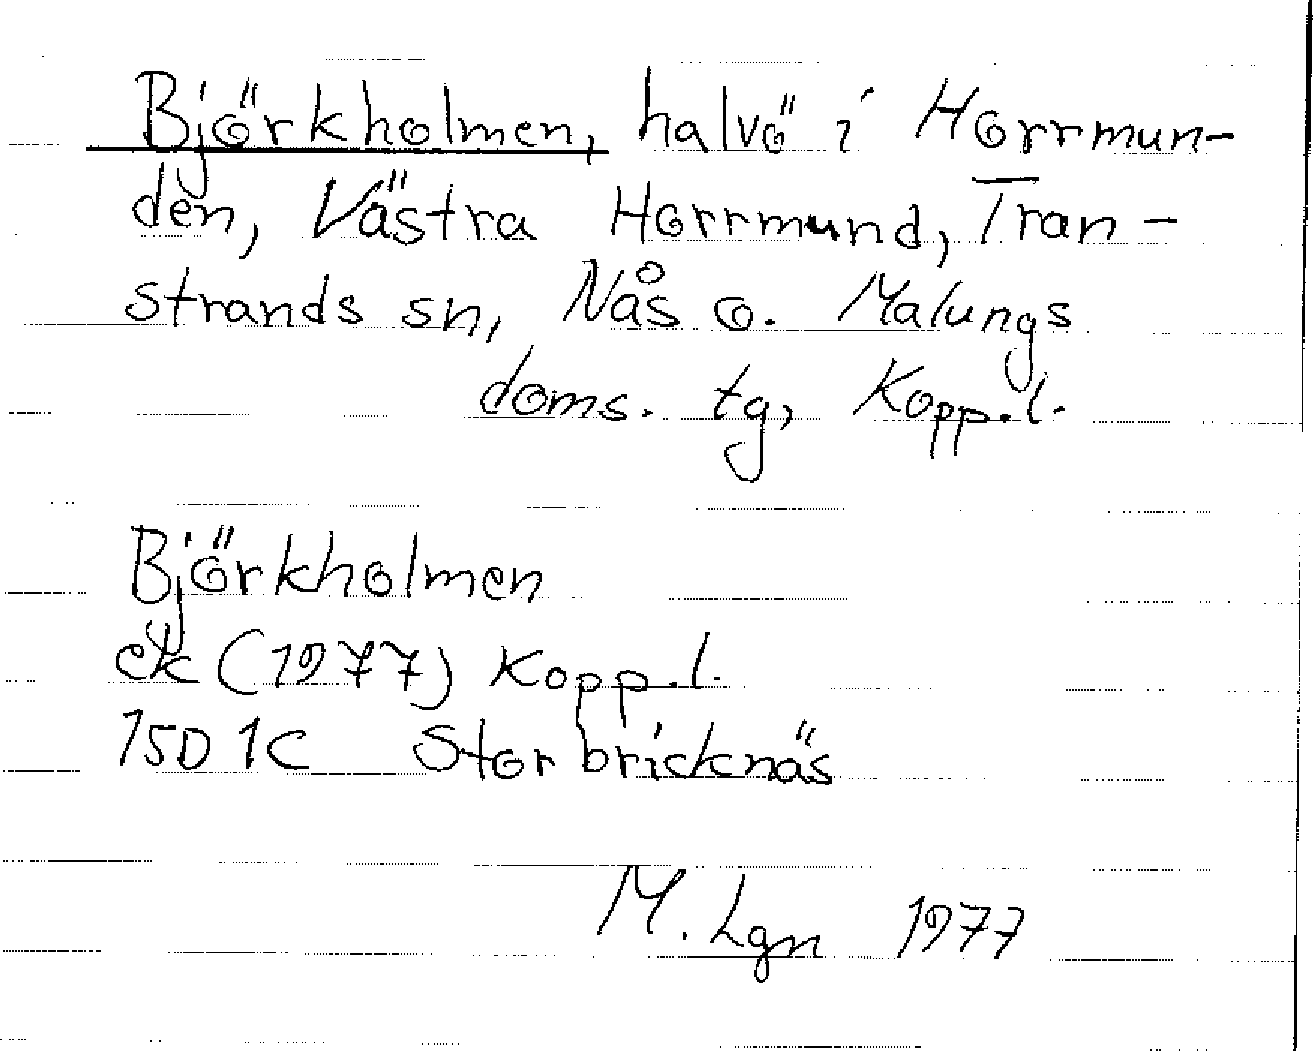 Björkholmen, halvö i Horrmun-
den, Västra Horrmund, Tran-
strands sn, Nås o. Malungs
doms. tg, Kopp.l.
Björkholmen
ek (1977) Kopp.l.
15D 1C Storbricknäs
M. Lgn 1977